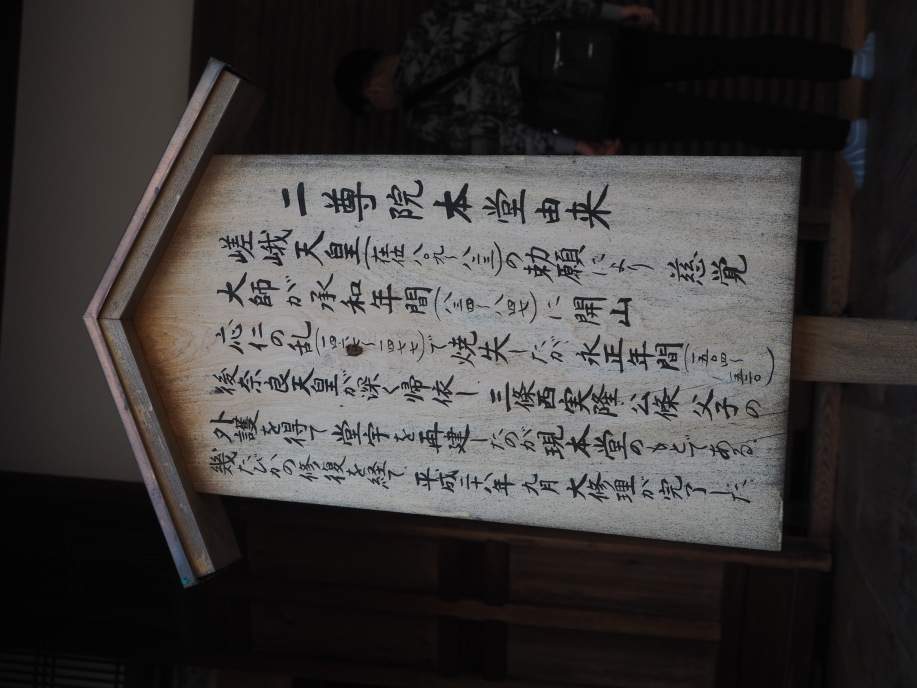 二尊院本堂由来
嵯峨天皇(在位八〇九〜八二三)の勅願により 慈覚
大師が承和年間(八三四〜八四七)に開山
応仁の乱(一四六七〜一四七七)で焼失したが 永正年間(一五〇四〜一五二〇)
後奈良天皇が深く帰依し 三條西実隆 公條 父子の
外護を得て 堂宇を再建したのが現本堂のもとである。
幾たびかの修復を経て 平成二十八年九月 大修理が完了した